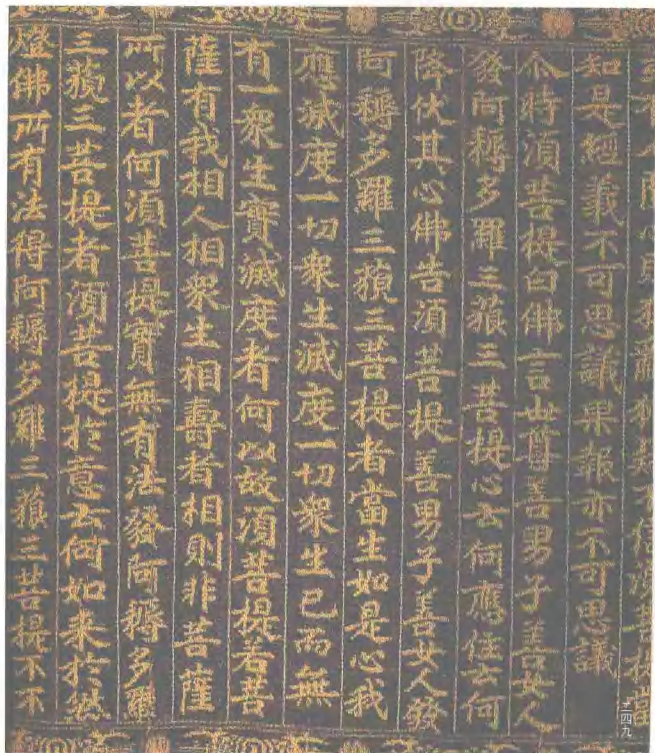 有人聞心則狂亂狐疑不信須菩提當
知是經義不可思議果報亦不可思議
尒時須菩提白佛言世尊善男子善女人
發阿耨多羅三藐三菩提心云何應住云何
降伏其心佛告須菩提善男子善女人發
阿耨多羅三藐三菩提者當生如是心我
應滅度一切衆生滅度一切衆生已而無
有一衆生實滅度者何以故須菩提若菩
薩有我相人相衆生相壽者相則非菩薩
所以者何須菩提實無有法發阿耨多羅
三藐三菩提者須菩提於意云何如来於然
燈佛所有法得阿耨多羅三藐三菩提不不
二四九